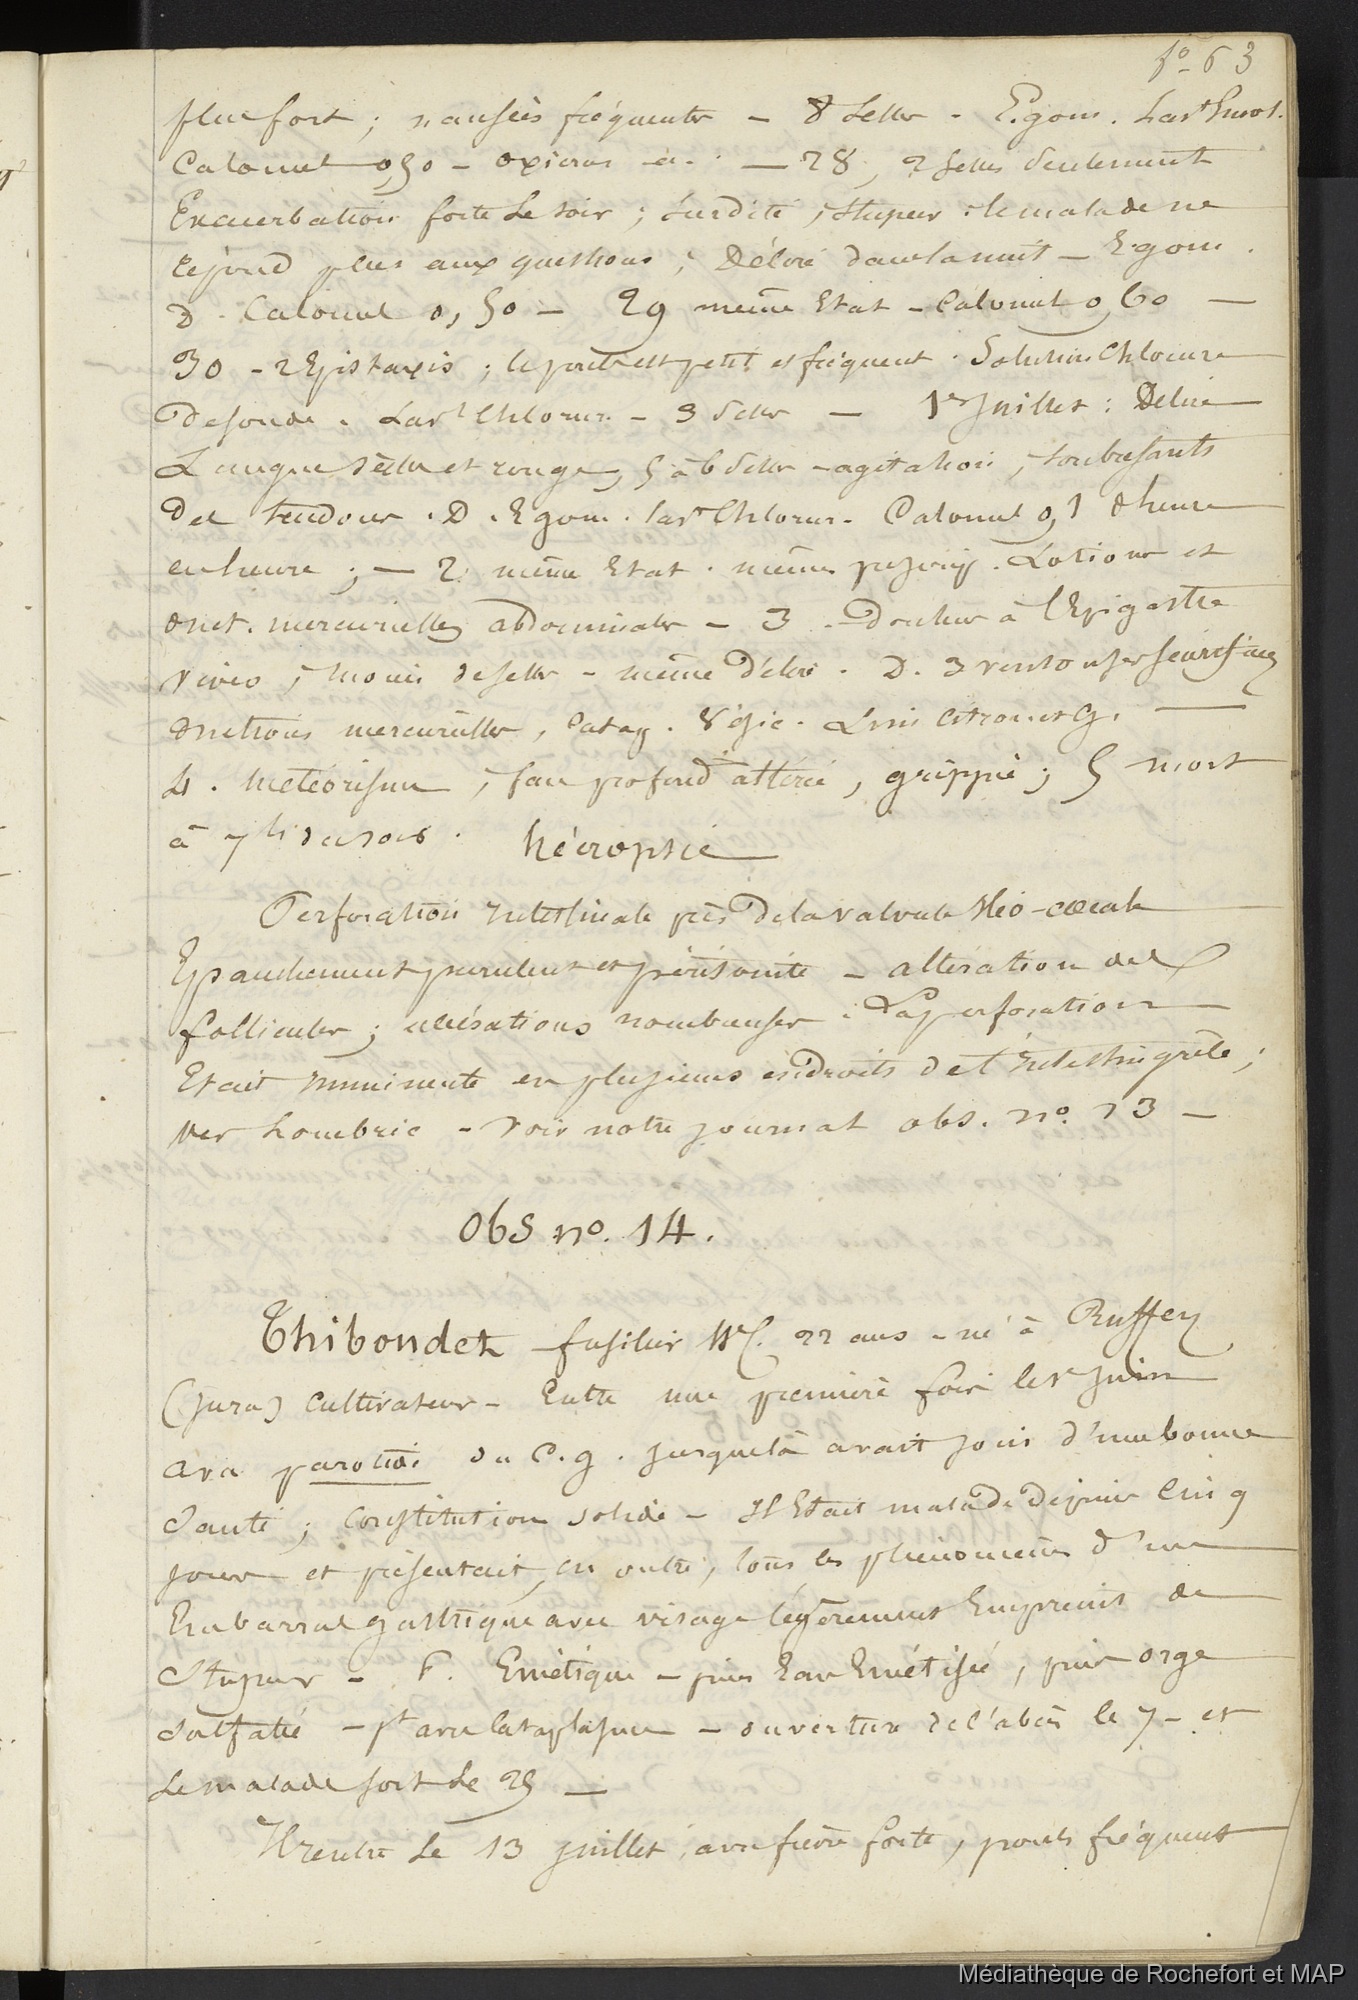 fo 63
plus fort ; nausées fréquentes – 8 selles – E. gom. Lavt
Calomel 0,50 – – 28, 2 selles seulement
Exacerbation forte le soir ; surdité, stupeur ; le malade ne
répond plus aux questions ; Délire dans la nuit – E. gom.
D. Calomel 0,50 – 29 même Etat – Calomel 0,60 –
30 – 2 Epistaxis ; le pouls est petit et fréquent. Solution Chlorure
de soude. Lavt Chlorur. – 3 selles – 1er Juillet : Délire
Langue sèche et rouge, 5 à 6 selles – agitation, soubresauts
des tendons. D. E. gom. Lavt Chlorur. Calomel 0,1 d'heure
en heure ; – 2. même Etat. même prescrip. Lotions et
onct. mercurielles abdominales – 3 – Douleur à l'Epigastre
vives, moins de selles – même Délire. D. 3 ventouses scarifiées
onctions mercurielles, Catap. Végic. Lim. citron. et g. –
4. Météorisme, face profondt altérée, grippée ; 5 mort
à 7 h du soir. Nécropsie
Perforation intestinale près de la valvule iléo-cœcale
Epanchement purulent et péritonite – altération des
follicules ; ulcérations nombreuses. La perforation
Etait imminente en plusieurs endroits de l'intestin grêle ;
ver Lombric – Voir notre journal obs. no. 13 –
Obs no. 14.
Thiboudet fusilier 22 ans – né à Ruffey
(Jura) cultivateur – Entre une première fois le 1r Juin
avec parotide du C. g. Jusque là avait joui d'une bonne
santé ; constitution solide – Il Etait malade depuis cinq
jours et présentait, en outre, tous les phénomènes d'un
Embarras gastrique avec visage légèrement Empreint de
Stupeur – P. Emétique – puis Eau Emétisée, puis orge
sulfatée – pt avec cataplasme – ouverture de l'abcès le 7 – et
le malade sort le 25 –
Il rentre le 13 juillet avec fièvre forte, pouls fréquent
Médiathèque de Rochefort et MAP